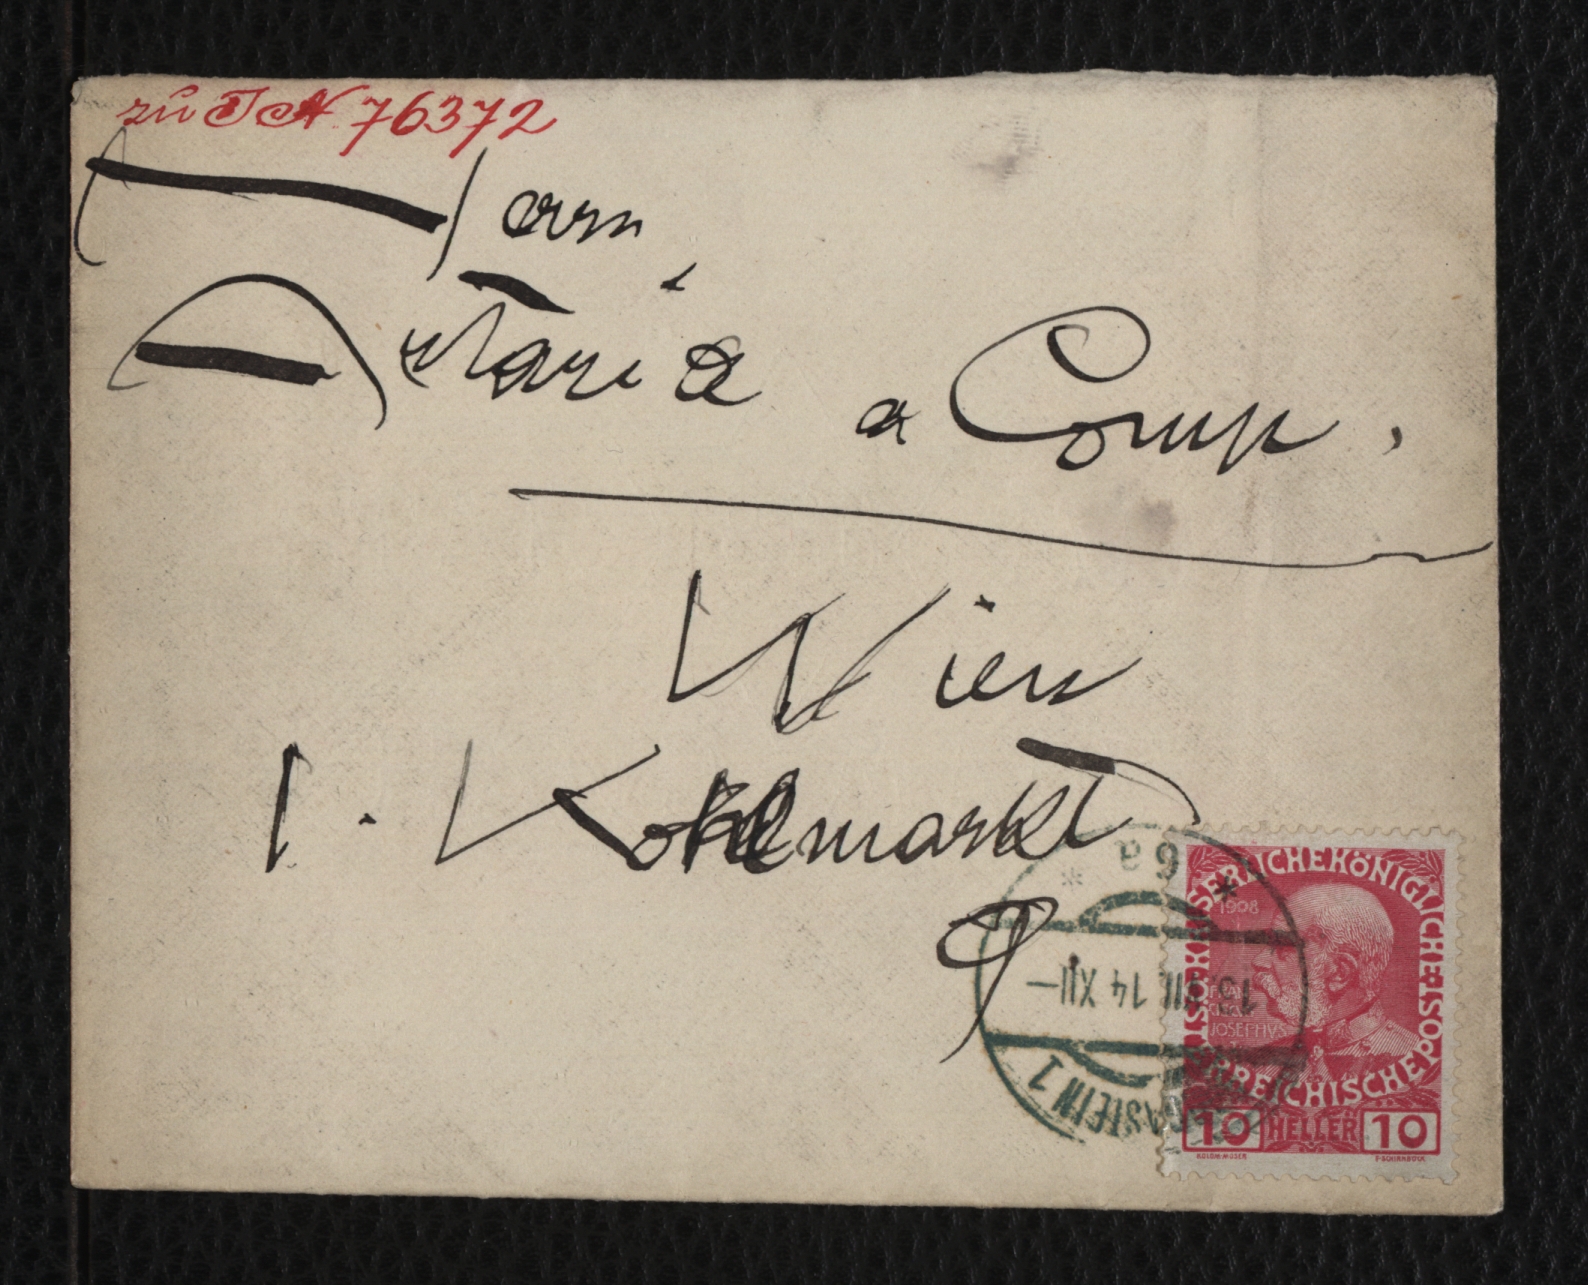 zu I.N. 76372
Herrn
Artaria & Comp.
Wien
I. Kohlmarkt
9
* 6a *
13. VII. 14 XII–
BADGASTEIN 1
KAISERLICHE KÖNIGLICHE ÖSTERREICHISCHE POST
1908
FRAN
CISCVS
IOSEPHVS
I
10 HELLER 10
KOLOM·MOSER F·SCHIRNBÖCK